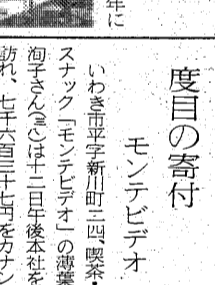 度目の寄付
モンテビデオ
いわき市平字新川町三四、喫茶・
スナック「モンテビデオ」の薄葉
洵子さん(三〇)は十二日午後本社を
訪れ、七千六百三十七円をカナシ
年に